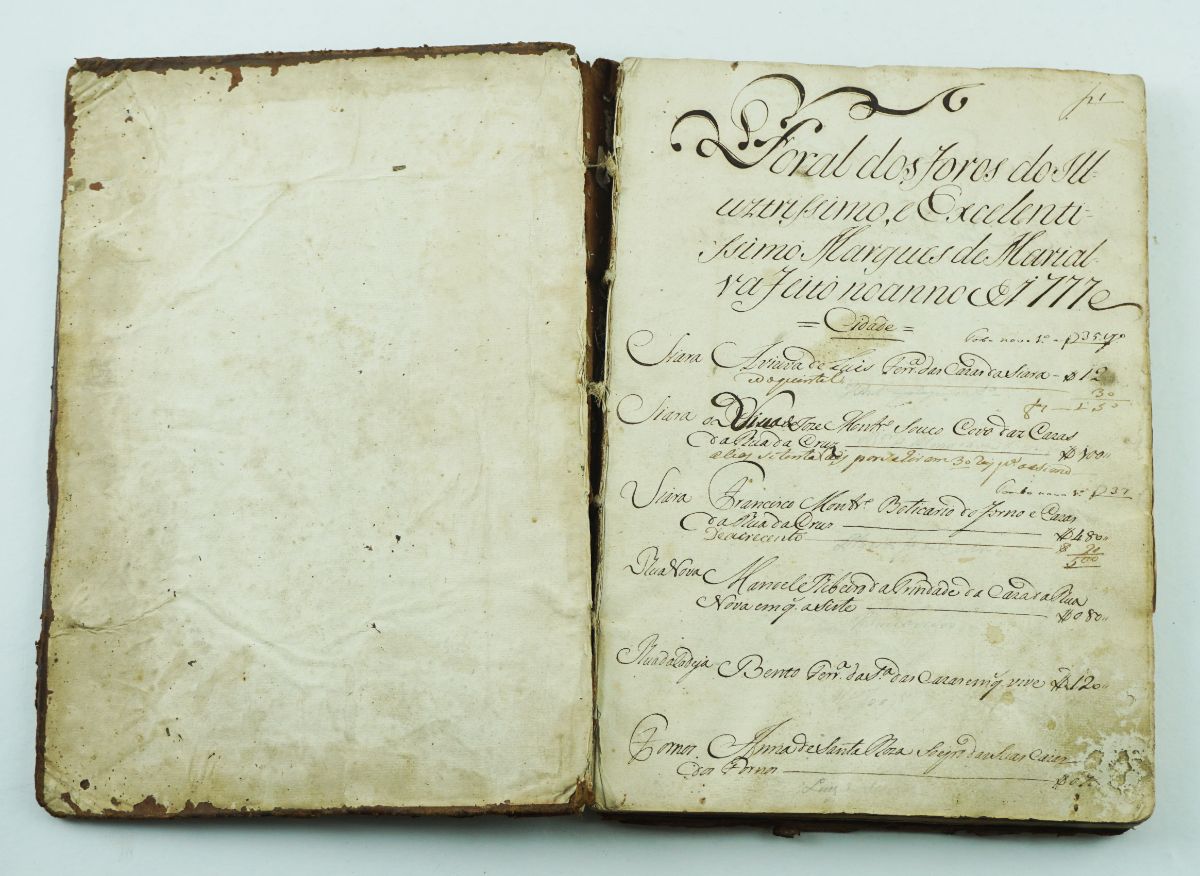 Foral dos foros do Ill-
uztrissimo, e Excelenti-
ssimo Marques de Marial-
va feito no anno de 1777
= Cidade =
Seara A viuva de Luis Ferrª das Cazas da Seara - 120
e do quintal 30
Seara a Viuva de Joze Montrº Souco Covo das Cazas
da Rua da Cruz 100
Seara Francisco Montrº Boticario do forno e Cazas
da Rua da Cruz 480
De acrecento 20
500
Rua Nova Manoel Ribeiro da Trindade da Caza da Rua
Nova em q asiste 080
Bento Ferrª da Sª das Cazas em q vive 120
Fornos Anna de Santa Roza das suas Cazas
dos Fornos